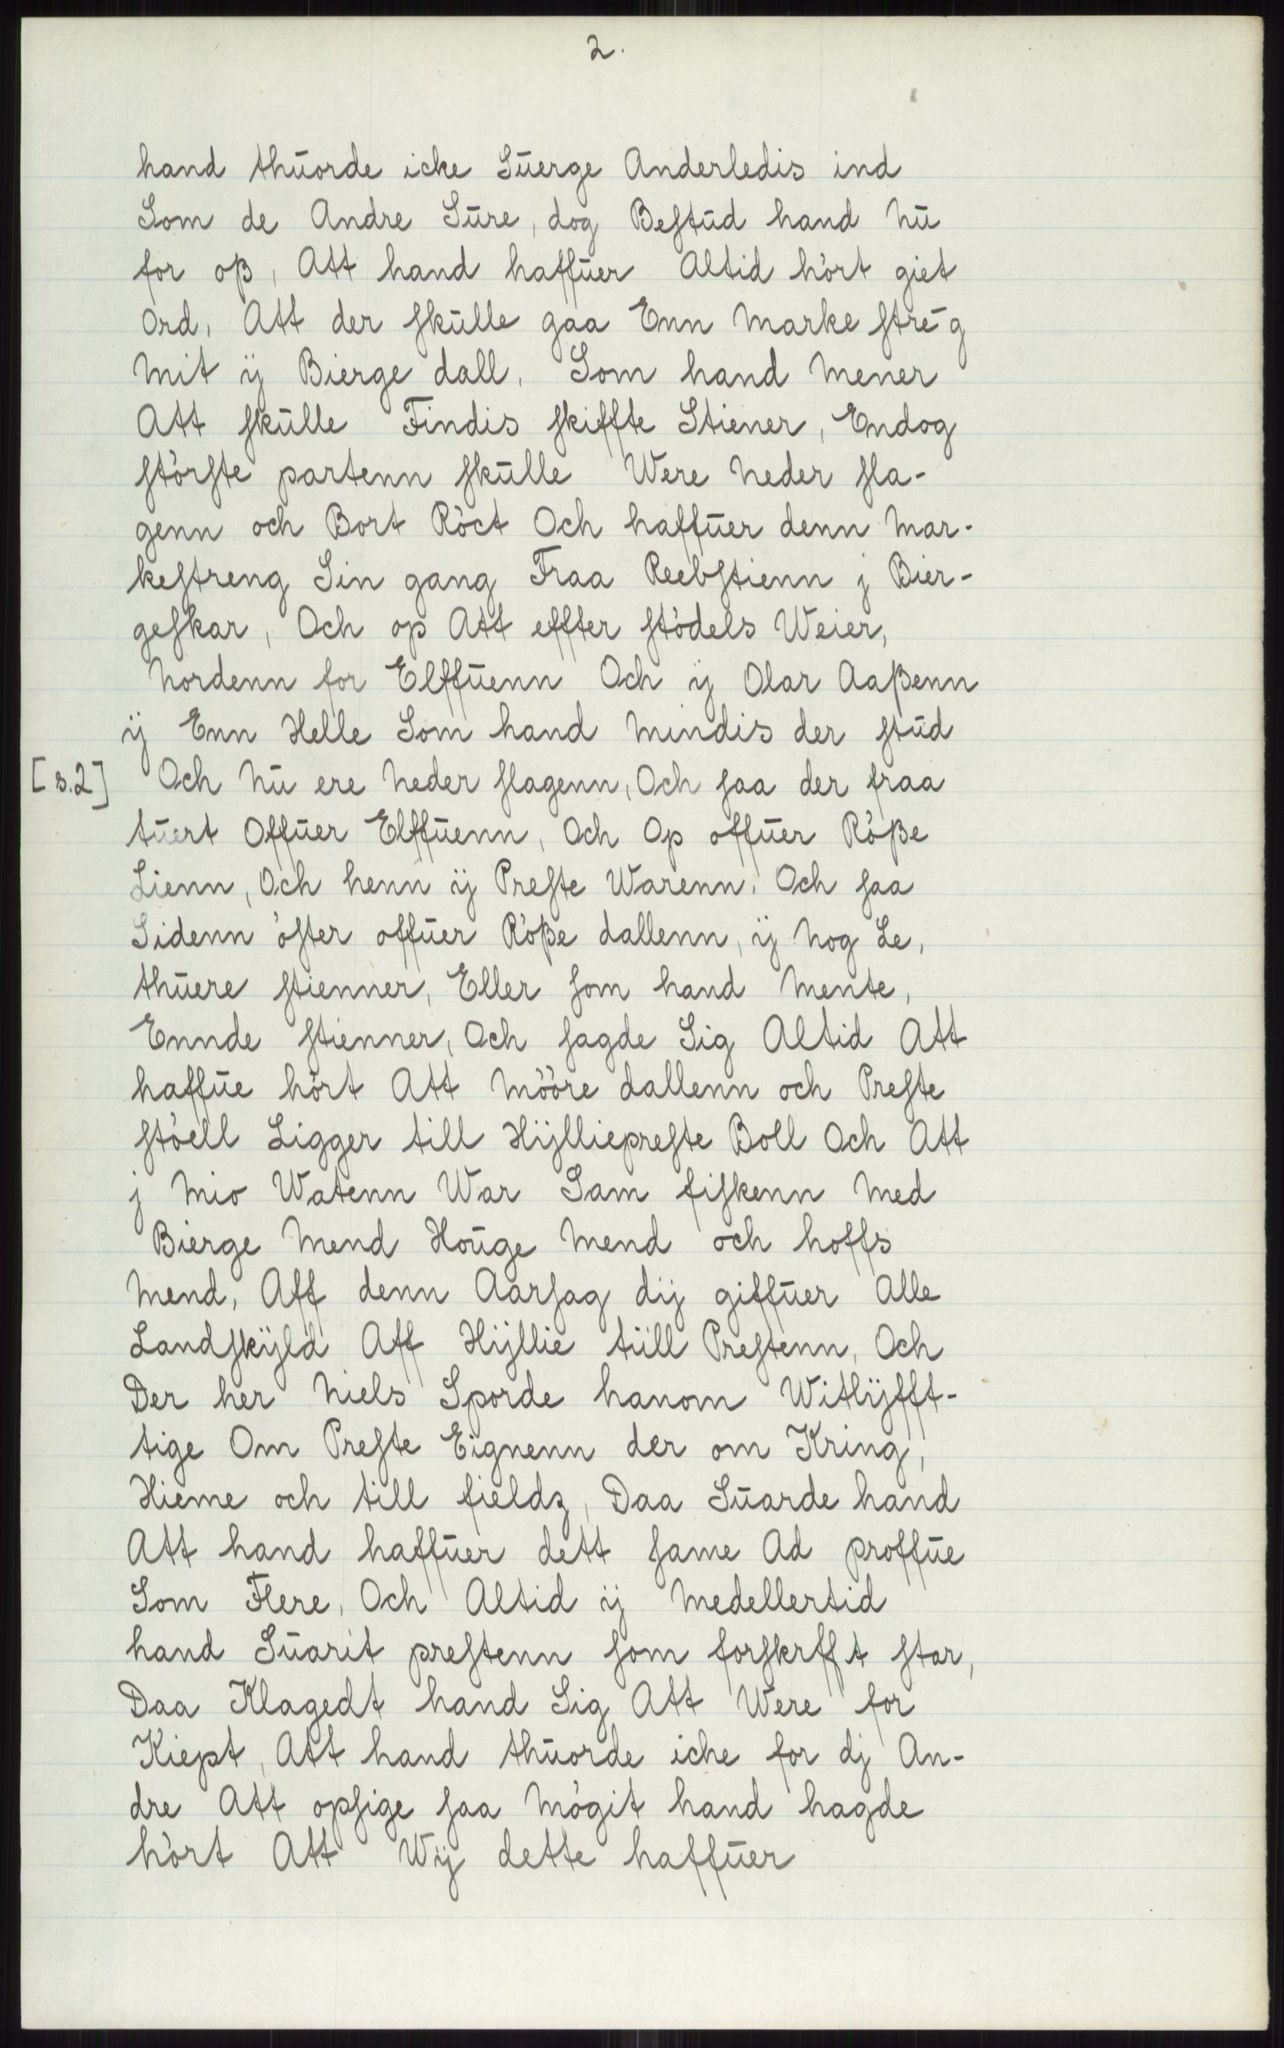 2.
hand thūorde icke Sūerge Anderledis ind
Som de Andre Sūre, dog Bestūd hand Nū
for oß, Att hand haffūer Altid hört giet
Ord, Att der skūlle gaa Enn Marke stre͞g
Mit ÿ Bierge dall, Som hand Mener
Att skūlle Findis skiffte Stiener, Endog
störste partenn skūlle Were Neder sla-
genn och Bort Röct Och haffūer denn Mar-
kestreng Sin gang Fraa Reebstienn j Bier-
geskar, Och op Att effter stödels Weier,
Nordenn for Elffūenn Och ÿ Olar Aaßenn
ÿ Enn Helle Som hand Mindis der stūd
[s.2] Och Nū ere Neder slagenn, Och saa der fraa
tūert Offūer Elffūenn, Och Op offūer Röße
Lienn, Och henn ÿ Preste Warenn, Och saa
Sidenn öster offūer Röße dallenn, ÿ Nog Le,
thūere stienner, Eller som hand Mente,
Ennde stienner, Och sagde Sig Altid Att
haffūe hört Att Mööre dallenn och Preste
stöell Ligger till Hÿlliepreste Boll Och Att
j Mio Watenn War Sam fiskenn Med
Bierge Mend Hoūge Mend och hoffs
Mend, Aff denn Aarsag dij giffūer Alle
Landskÿld Aff Hÿllie tüll Prestenn, Och
Der her Niels Sporde hanom Witlÿfft-
tige Om Preste Eignenn der om Kring,
Hieme och till fieldz, Daa Sūarde hand
Att hand haffūer dett same Ad proffūe
Som Flere, Och Altid ÿ Medellertid
hand Sūarit prestenn som forskrfft star,
Daa Klagedt hand Sig Att Were for
Kiept, Att hand thūorde iche for dj An-
dre Att opsige saa Mögit hand hagde
hört Att Wÿ dette haffūer